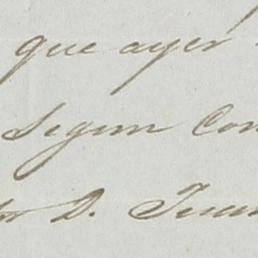 que ayer
Segun Con
D. Juan